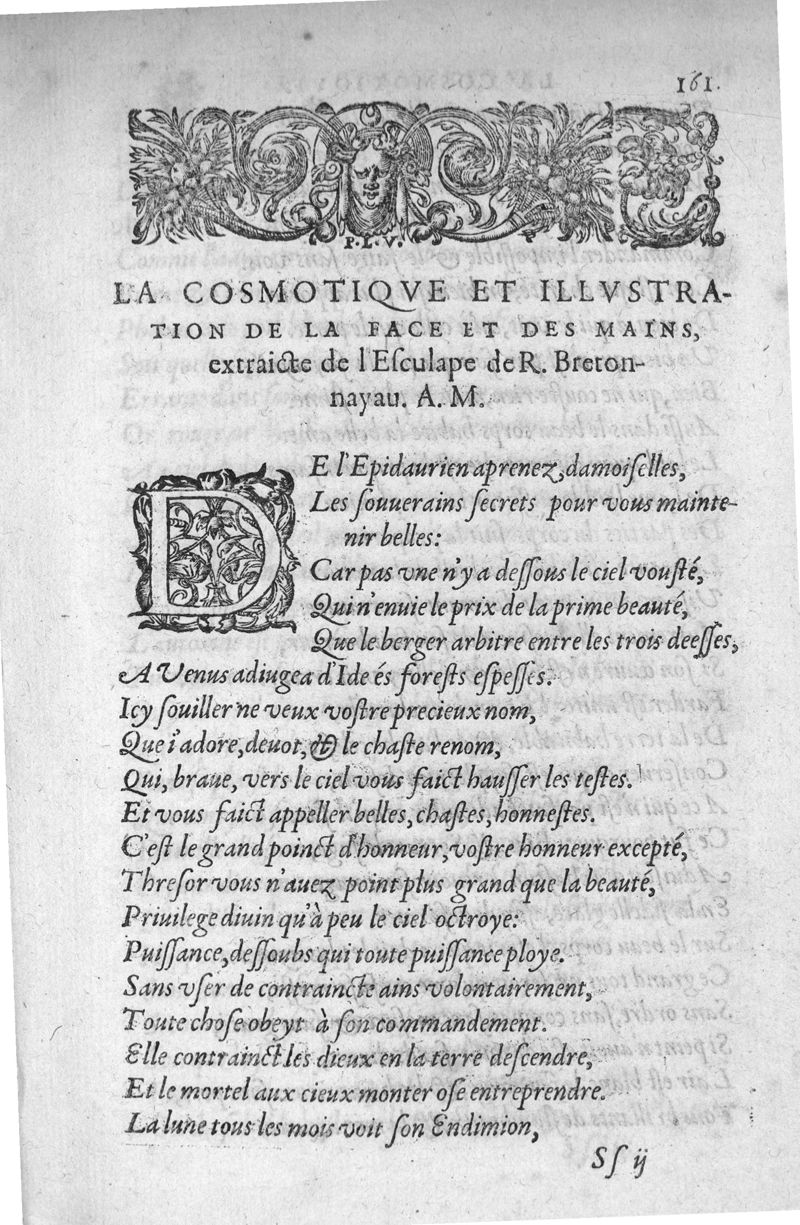 161.
P. L. V.
LA COSMOTIQVE ET ILLVSTRA-
TION DE LA FACE ET DES MAINS,
extraicte de l'Esculape de R. Breton-
nayau. A. M.
DE l'Epidaurien aprenez, damoiselles,
Les souuerains secrets pour vous mainte-
nir belles:
Car pas vne n'y a dessous le ciel vousté,
Qui n'enuie le prix de la prime beauté,
Que le berger arbitre entre les trois deesses,
A Venus adiugea d'Ide és forests espesses.
Icy souiller ne veux vostre precieux nom,
Que i'adore, deuot, & le chaste renom,
Qui, braue, vers le ciel vous faict hausser les testes.
Et vous faict appeller belles, chastes, honnestes.
C'est le grand poinct d'honneur, vostre honneur excepté,
Thresor vous n'auez point plus grand que la beauté,
Priuilege diuin qu'à peu le ciel octroye:
Puissance, dessoubs qui toute puissance ploye.
Sans vser de contraincte ains volontairement,
Toute chose obeyt à son commandement.
Elle contrainct les dieux en la terre descendre,
Et le mortel aux cieux monter ose entreprendre.
La lune tous les mois voit son Endimion,
Sſ ij